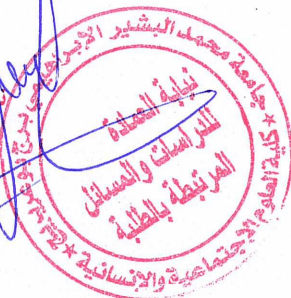 جامعة محمد البشير الإبراهيمي برج بوعريريج
* كلية العلوم الإجتماعية والإنسانية *
نيابة العمادة
للدراسات والمسائل
المرتبطة بالطلبة